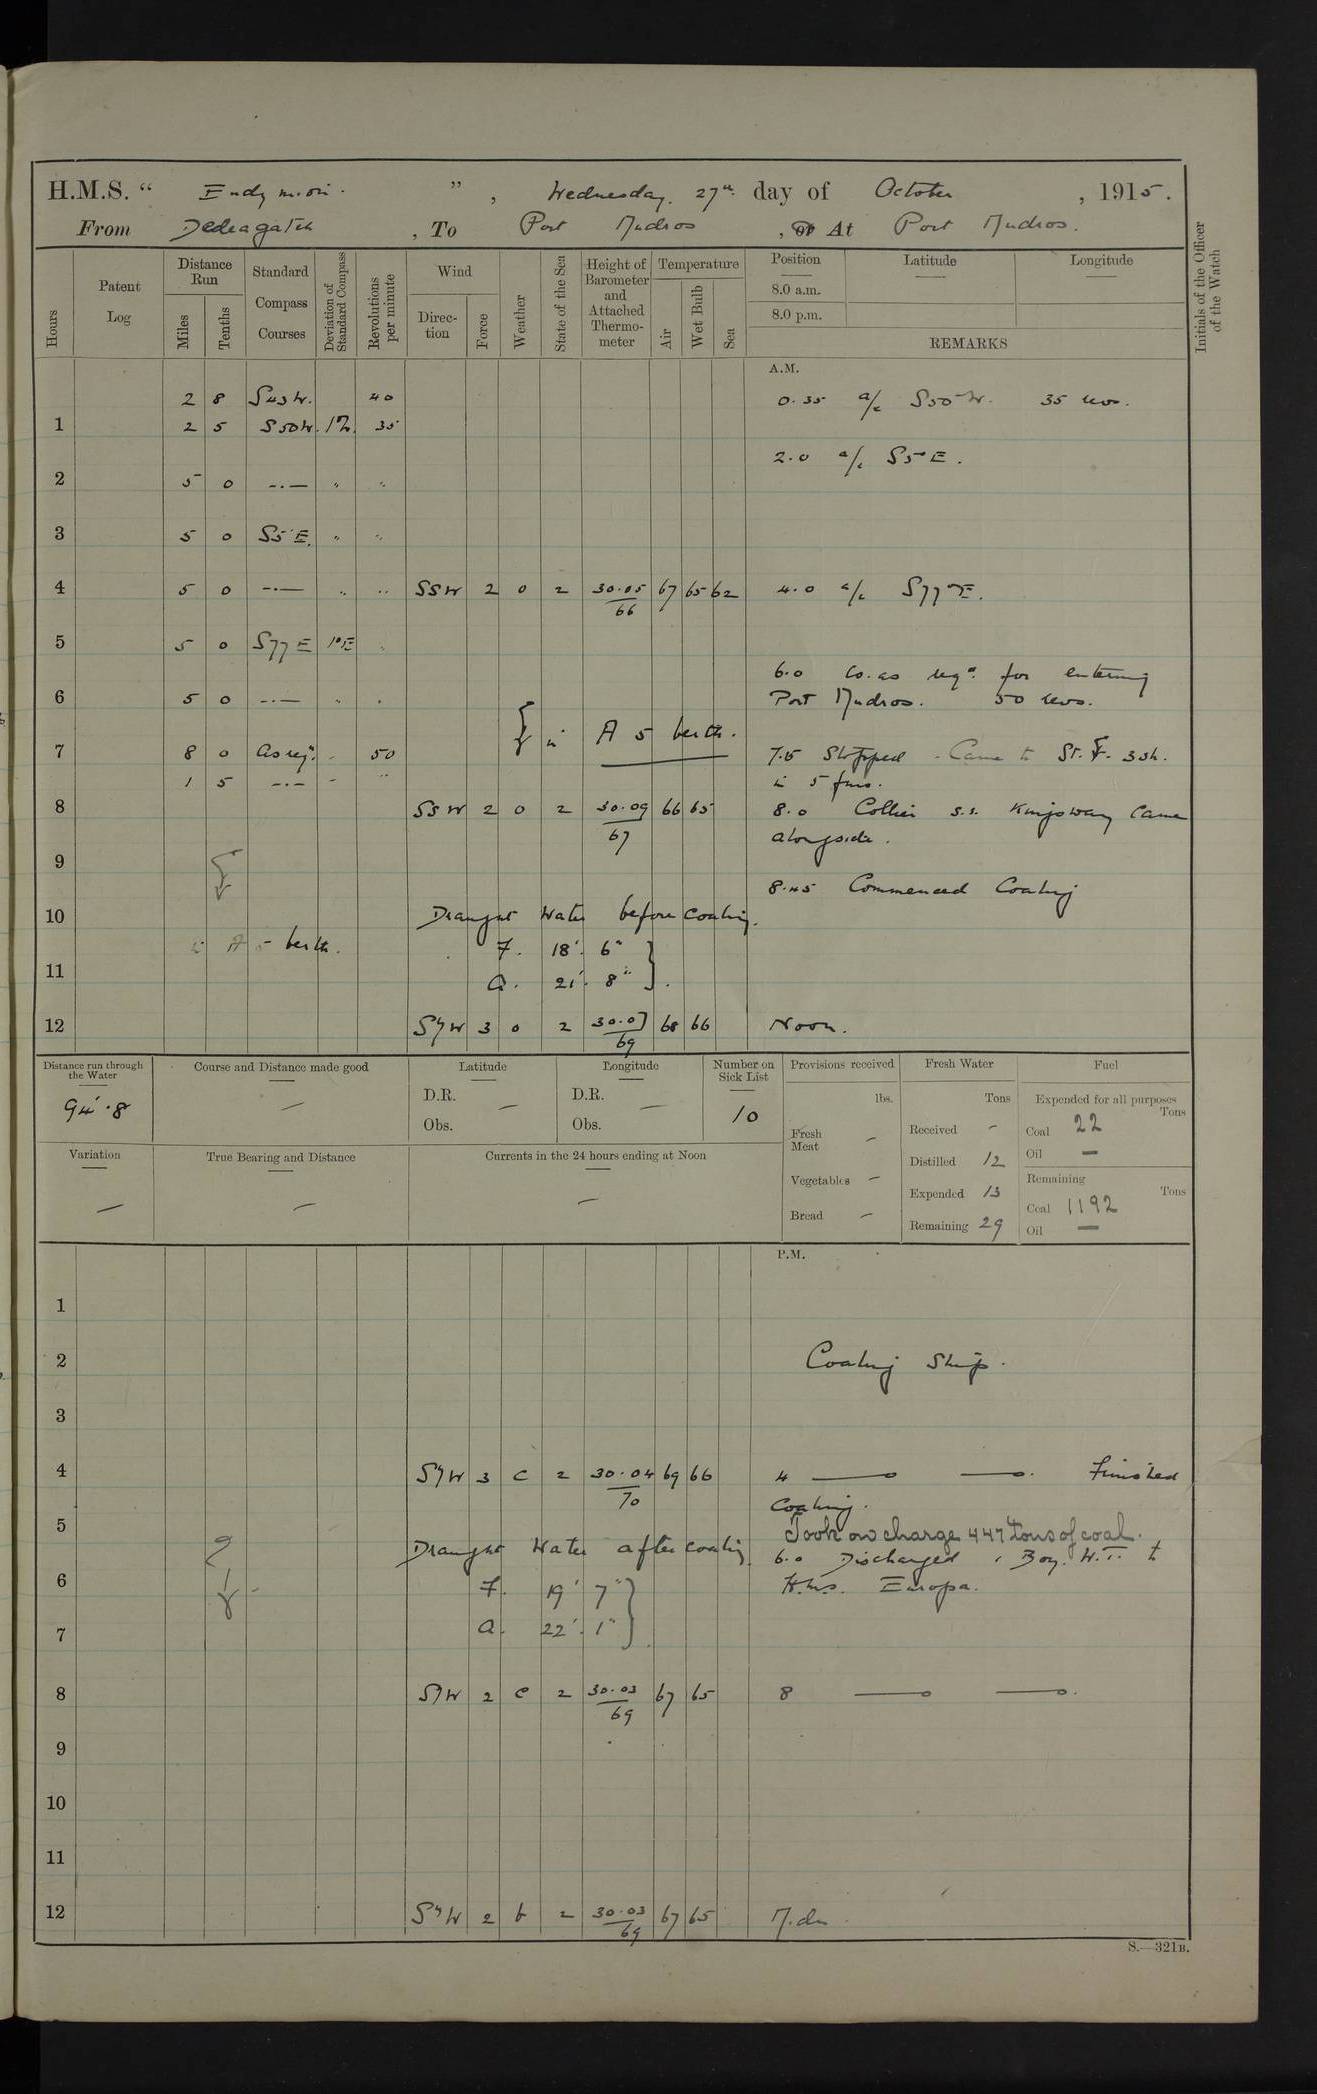 H.M.S. “ Endymion. ” , Wednesday. 27th day of October , 1915.
From Dedeagatch , To Port Mudros , or At Port Mudros.
Hours
Patent Log
Distance Run
Miles
Tenths
Standard Compass Courses
Deviation of Standard Compass
Revolutions per minute
Wind
Direc-tion
Force
Weather
State of the Sea
Height of Barometer and Attached Thermo-meter
Temperature
Air
Wet Bulb
Sea
Position
8.0 a.m.
8.0 p.m.
Latitude
Longitude
REMARKS
Initials of the Officer of the Watch
A.M.
2 8 S43W. 40 0.35 a/c S50W. 35 revs.
1 2 5 S50W. 35
2.0 a/c S5E.
2 5 0 -·- " "
3 5 0 S5E. " "
4 5 0 -·- " " SSW 2 0 2 30.05/66 67 65 62 4.0 a/c S77E.
5 5 0 S77E 1°E "
6.0 Co. as reqd. for entering
6 5 0 -·- " " Port Mudros. 50 revs.
in A 5 berth.
7 8 0 as req. " 50 7.15 Stopped. Came to St. 3 sh.
1 5 -·- " " in 5 fms.
8 SSW 2 0 2 30.09/67 66 65 8.0 Collier s.s. Kingsway Came
alongside.
9
8.45 Commenced Coaling
10 Draught Water before coaling.
in A 5 berth. F. 18' 6"
11 A. 21' 8"
12 SyW 3 0 2 30.07/69 68 66 Noon.
Distance run through the Water
94'.8
Course and Distance made good
—
Latitude
D.R. —
Obs.
Longitude
D.R. —
Obs.
Number on Sick List
10
Provisions received
lbs.
Fresh Meat —
Vegetables —
Bread —
Fresh Water
Tons
Received —
Distilled 12
Expended 13
Remaining 29
Fuel
Expended for all purposes
Tons
Coal 22
Oil —
Remaining
Tons
Coal 1192
Oil —
Variation
—
True Bearing and Distance
—
Currents in the 24 hours ending at Noon
—
P.M.
1
2 Coaling Ship.
3
4 SyW 3 c 2 30.04/70 69 66 4 —— —— Finished
Coaling.
5 Took on charge 447 tons of coal.
Draught Water after coaling. 6.0 Discharged 1 Boy. W.T. to
6 F. 19' 7" H.M.S. Europa.
7 A. 22' 1"
8 SyW 2 c 2 30.03/69 67 65 8 —— ——
9
10
11
12 SyW 2 b 2 30.03/69 67 65
S.—321B.